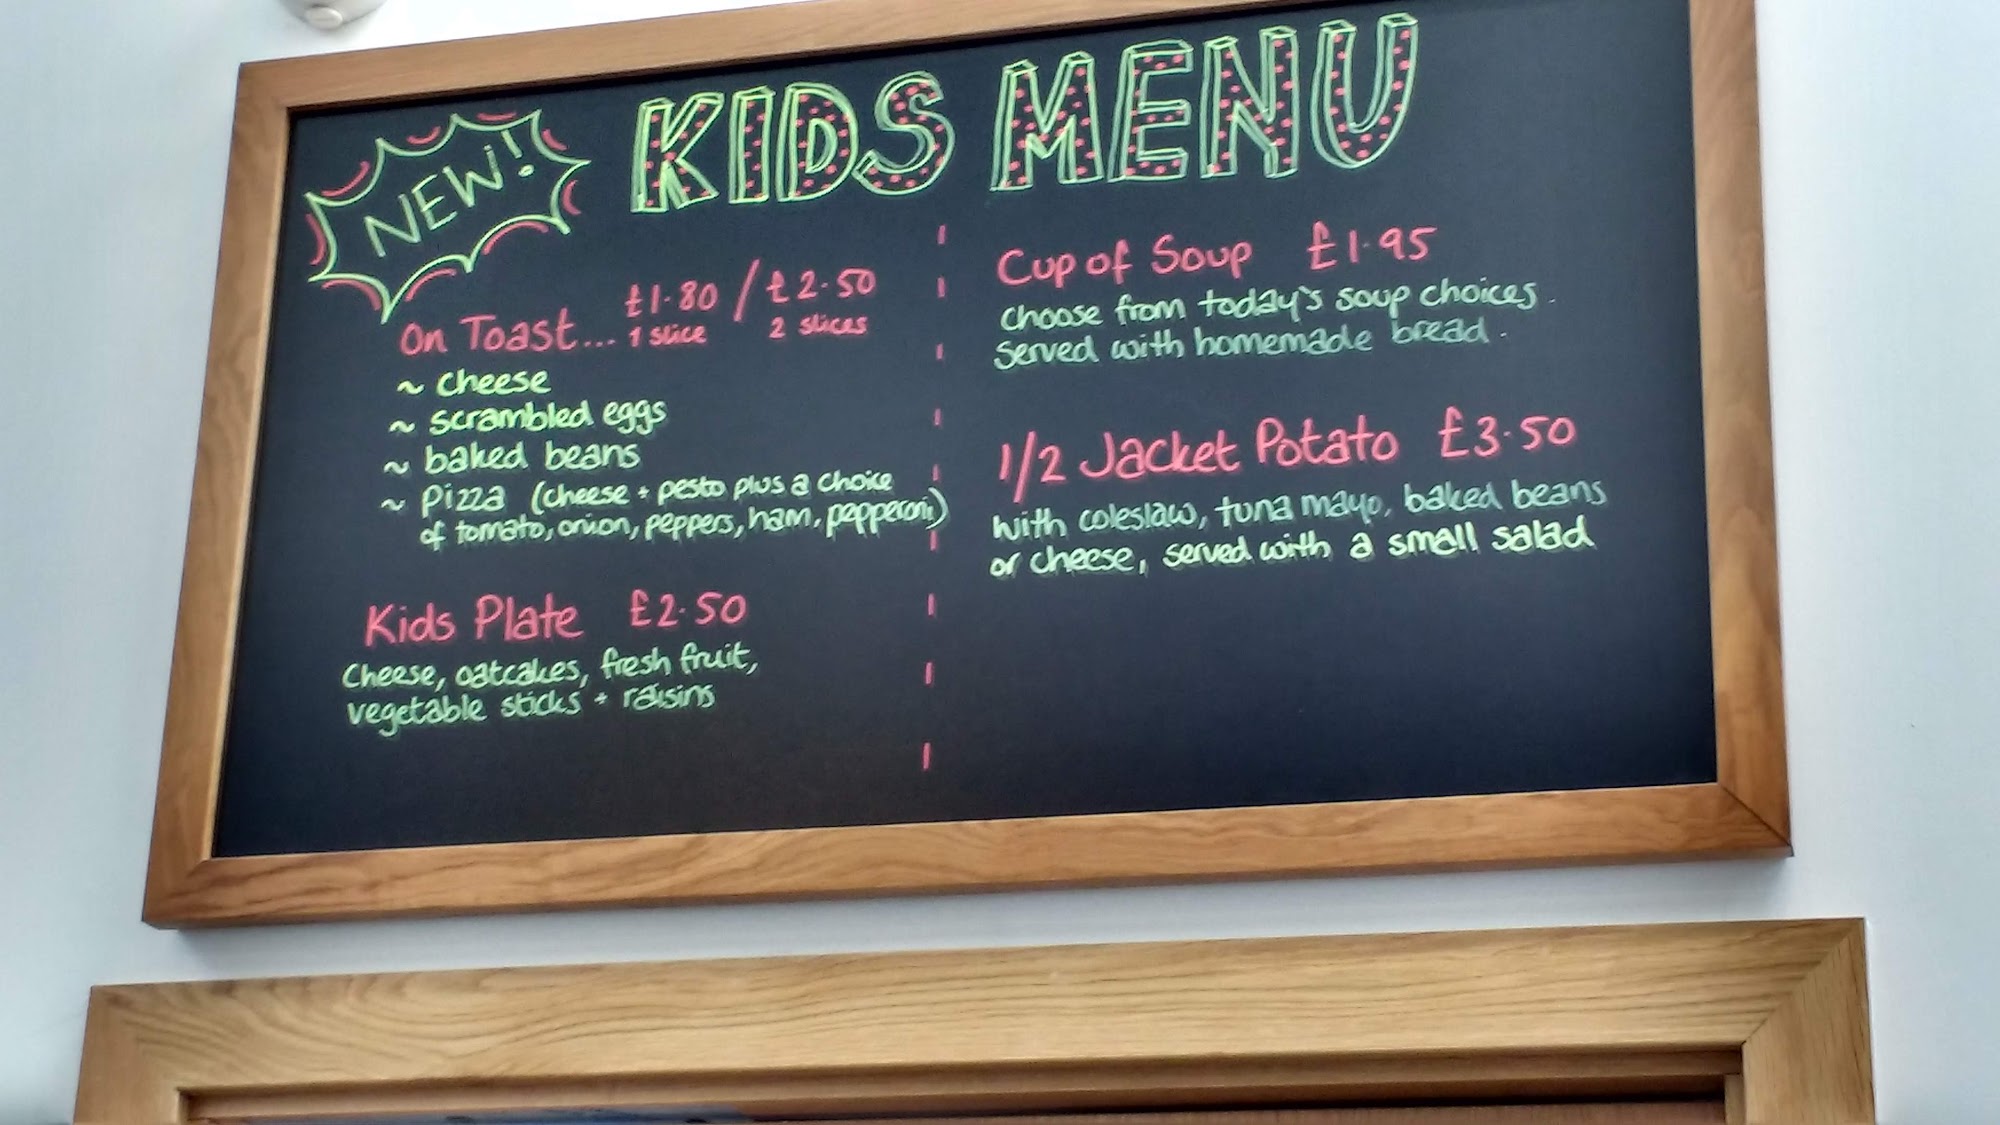 NEW!
KIDS MENU
On Toast... £1.80 / £2.50
1 slice 2 slices
~ cheese
~ scrambled eggs
~ baked beans
~ pizza (cheese + pesto plus a choice
of tomato, onion, peppers, ham, pepperoni)
Kids Plate £2.50
Cheese, oatcakes, fresh fruit,
vegetable sticks + raisins
Cup of Soup £1.95
Choose from today's soup choices.
Served with homemade bread.
1/2 Jacket Potato £3.50
with coleslaw, tuna mayo, baked beans
or cheese, served with a small salad